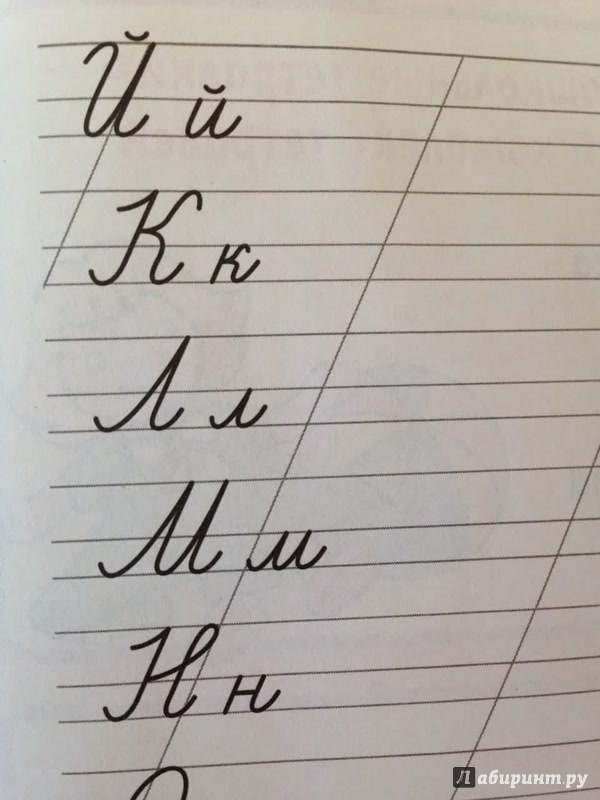 Й й
К к
Л л
М м
Н н
Лабиринт.ру